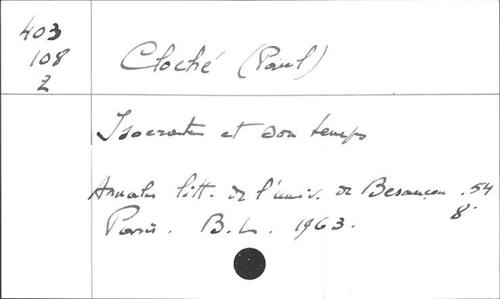 403
108
Z
Cloché (Paul)
Isocrate et son temps
Annales litt. de l'univ. de Besançon .54
8°
Paris. B.L. 1963.